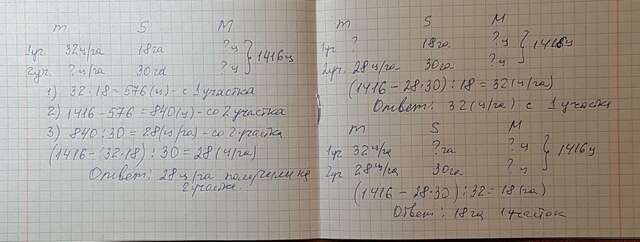 m S M
1уч. 32ц/га 18га ?ц
2уч. ?ц/га 30га ?ц } 1416ц
1) 32·18=576(ц)-с 1 участка
2) 1416-576=840(ц)-со 2 участка
3) 840:30=28(ц/га)-со 2 участка
(1416-(32·18):30=28(ц/га)
Ответ: 28ц/га получили на
2 участке.
m S M
1уч ? 18га ?ц
2уч. 28ц/га 30га ?ц } 1416ц
(1416-28·30):18=32(ц/га)
Ответ: 32(ц/га) с 1 участка
m S M
1уч 32ц/га ?га ?ц
2уч 28ц/га 30га ?ц } 1416ц
(1416-28·30):32=18(га)
Ответ: 18га 1 участок